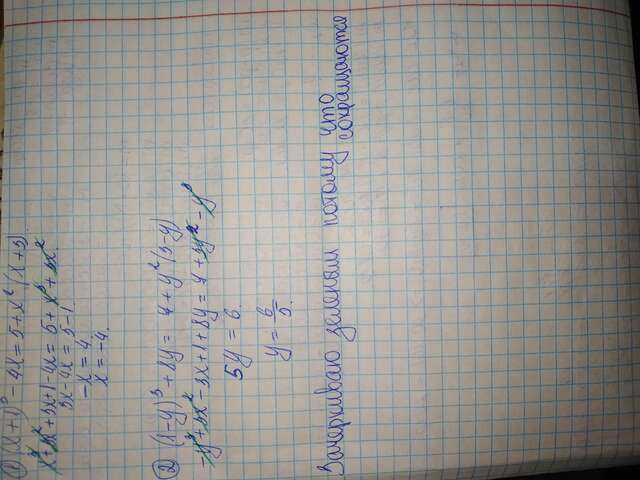 ① (x+1)³ - 4x = 5 + x² (x+3)
x³+3x²+3x+1-4x = 5+x³+3x²
3x-4x = 5-1
-x = 4.
x = -4.
② (1-y)³ + 8y = 7 + y² (3-y)
-y³+3x²-3x+1+8y = 7+3y²-y³
5y = 6.
y = 6/5.
Зачеркиваю зеленым потому что
сокращаются